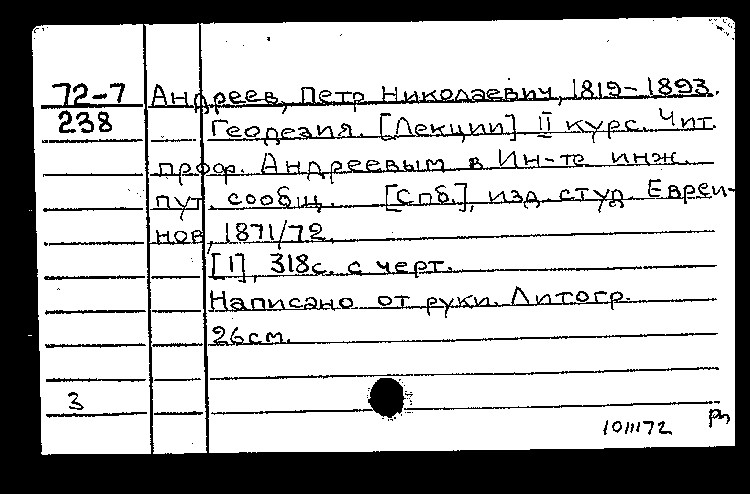 72-7 Андреев, Петр Николаевич, 1819-1893.
238 Геодезия. [Лекции] II курс. Чит.
проф. Андреевым в Ин-те инж.
пут. сообщ. [Спб.], изд. студ. Евреи-
нов, 1871/72.
[1], 318с. с черт.
Написано от руки. Литогр.
26см.
3